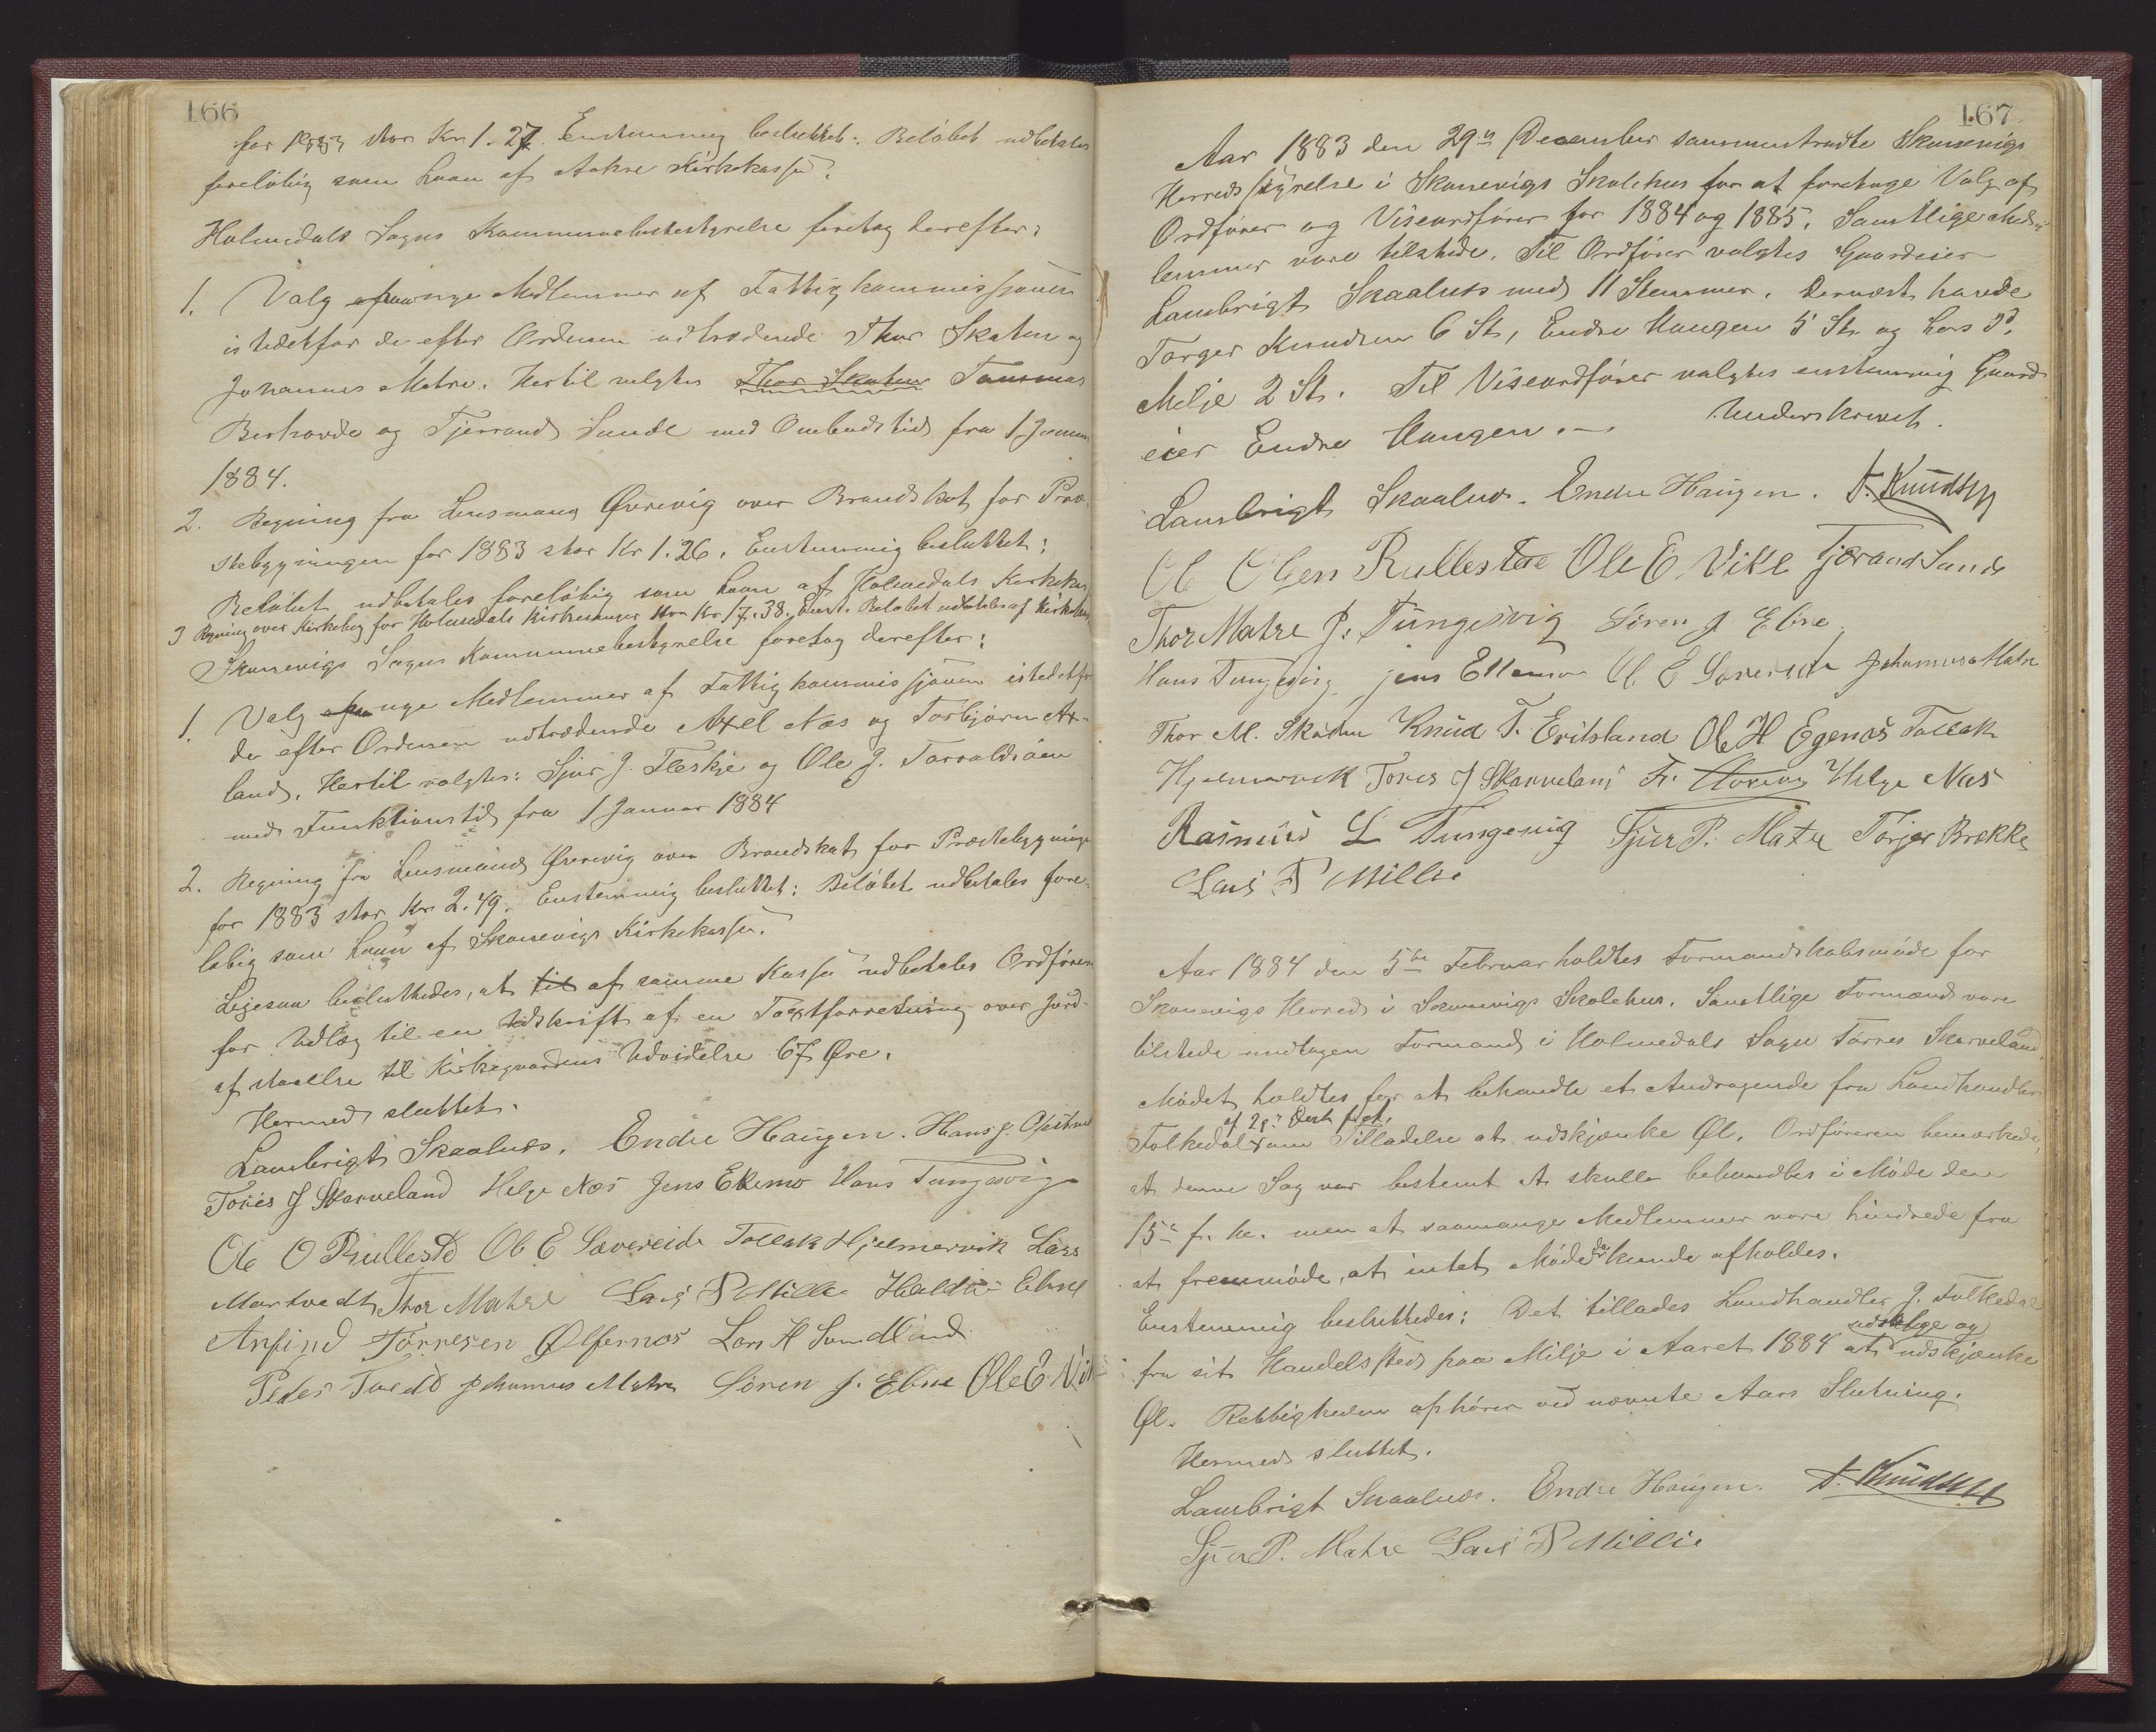 166
for 1883 stor Kr 1.27. Enstemmig besluttet: Beløbet udbetales
foreløbig som Laan af Aakre Kirkekasse.
Holmedals Sogns Kommunebestyrelse foretog derefter:
1. Valg af nye Medlemmer af Fattigkommissjonen
istedetfor de efter Ordenen udtrædende Thor Skaten og
Johannes Matre. Hertil valgtes Thor Skaten Tammas
Berhovde og Tjerrand Sunde med Ombudstid fra 1 Januar
1884.
2. Regning fra Lensmand Øvrevig over Brandskat for Præ-
stebygningen for 1883 stor Kr 1.26. Enstemmig besluttet:
Beløbet udbetales foreløbig som Laan af Holmedals Kirkekasse
3 Regning over for Holmedals stor Kr 17.38. Enst. Beløbet udbetales af Kirkekassen
Skonevigs Sogns Kommunebestyrelse foretog derefter:
1. Valg nye Medlemmer af Fattigkommissjonen istedetfor
de efter Ordenen udtrædende Axel Næs og Torbjørn Ax-
land. Hertil valgtes: Sjur J. Fleskje og Ole J. Tarraldsøen
med Funktionstid fra 1 Januar 1884
2. Regning fra Lensmand Øvrevig over Brandskat for Præstebygningen
for 1883 stor Kr 2.49. Enstemmig besluttet: Beløbet udbetales fore-
løbig som Laan af Skonevigs Kirkekasse.
Ligesaa besluttedes, at til af samme Kasse udbetales Ordføreren
for Udlæg til en Udskrift af en Taxtforretning over Jord-
afstaaelse til Kirkegaardens Udvidelse 67 Øre.
Hermed sluttet.
Lambrigt Skaalnes. Endre Haugen. Hans J.
Tøres J Skarveland Helge Næs Jens Ekemo Hans Tungesvig
Ole O Rullestd Ole E Sævereide Tollak Hjelmervik Lars
Markvedt Thor Matre Lars P Millie Haldor Ebne
Anfind Tørresen Ølfernæs Lars H Sundlind
Peder Johannes Matre Søren J. Ebne Ole E. Vik
167
Aar 1883 den 29de December sammentraadte Skonevigs
Herredsstyrelse i Skonevigs Skolehus for at foretage Valg af
Ordfører og Viseordfører for 1884 og 1885. Samtlige Med-
lemmer vare tilstede. Til Ordfører valgtes Gaardeier
Lambrigt Skaalnes med 11 Stemmer. Dernæst havde
Torger Knudsen 6 St, Endre Haugen 5 St og Lars P.
Milje 2 St. Til Viseordfører valgtes enstemmig Gaard-
eier Endre Haugen.— Underskrevet.
Lambrigt Skaalnes. Endre Haugen. T. Knudsen
Ole Olsen Rullestae Ole E. Vike Tjerand Sunde
Thor Matre J. Tungesvig Søren J Ebne
Hans Tungesvig Jens Ekemo O. E Sævereide Johannes Matre
Thor M. Skaten Knud T. Eritsland Ole H Egenæs Tollak
Hjelmervik Tøres J Skarveland Fr. Helge Næs
Rasmus L Tungesvig Sjur P. Matre Torjer Brekke
Lars P Millie
Aar 1884 den 5te Februar holdtes Formandskabsmøde for
Skonevigs Herred i Skonevigs Skolehus. Samtlige Formænd vare
tilstede undtagen Formand i Holmedals Sogn Tørres Skarveland.
Mødet holdtes for at behandle et Andragende fra Landhandler
Folkedal om Tilladelse at udskjænke Øl. Ordføreren bemærkede,
at denne Sag var bestemt at skulle behandles i Møde den
15de f. M. men at saamange Medlemmer vare hindrede fra
at fremmøde, at intet Møde da kunde afholdes.
Enstemmig besluttedes: Det tillades Landhandler J. Folkedal
fra sit Handelssted paa Milje i Aaret 1884 at udsælge og udskjænke
Øl. Rettigheden ophører ved nævnte Aars Slutning.
Hermed sluttet.
Lambrigt Skaalnes. Endre Haugen. T. Knudsen
Sjur P. Matre Lars P Millie